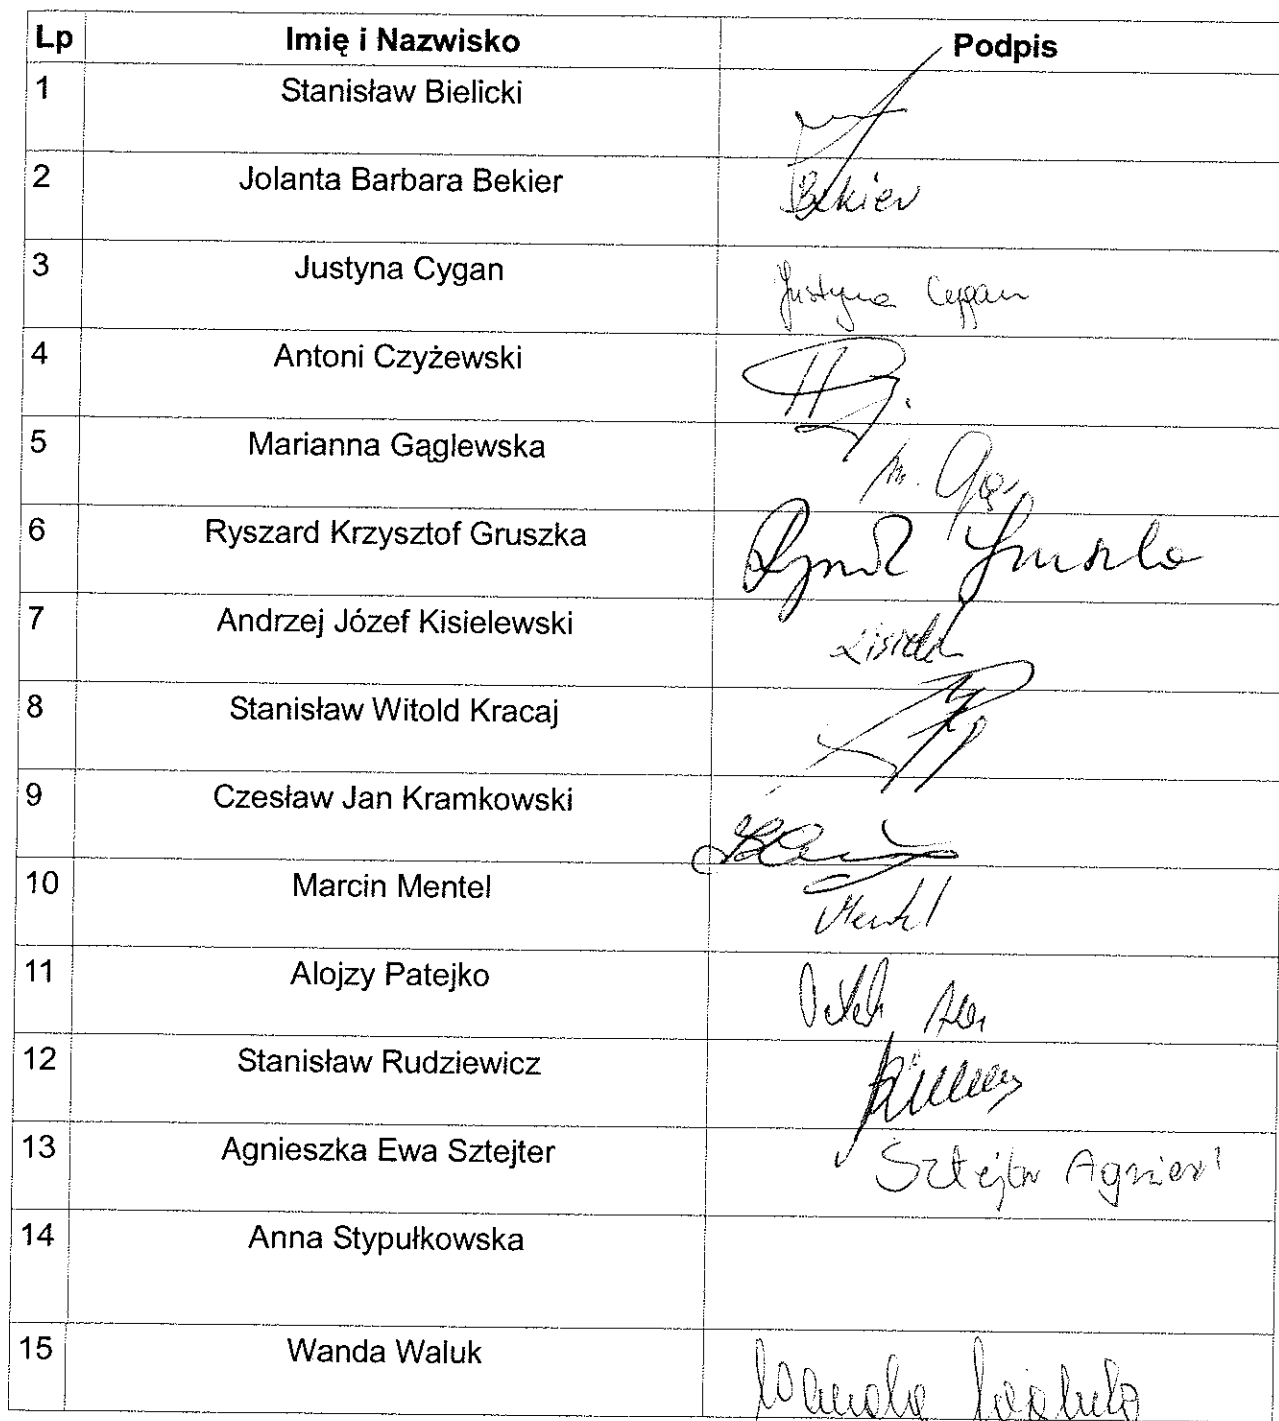 Lp Imię i Nazwisko Podpis
1 Stanisław Bielicki
2 Jolanta Barbara Bekier Bekier
3 Justyna Cygan Justyna Cygan
4 Antoni Czyżewski
5 Marianna Gąglewska M. Gąg
6 Ryszard Krzysztof Gruszka
7 Andrzej Józef Kisielewski
8 Stanisław Witold Kracaj
9 Czesław Jan Kramkowski
10 Marcin Mentel Mentel
11 Alojzy Patejko
12 Stanisław Rudziewicz
13 Agnieszka Ewa Sztejter Sztejter
14 Anna Stypułkowska
15 Wanda Waluk Wanda Waluk